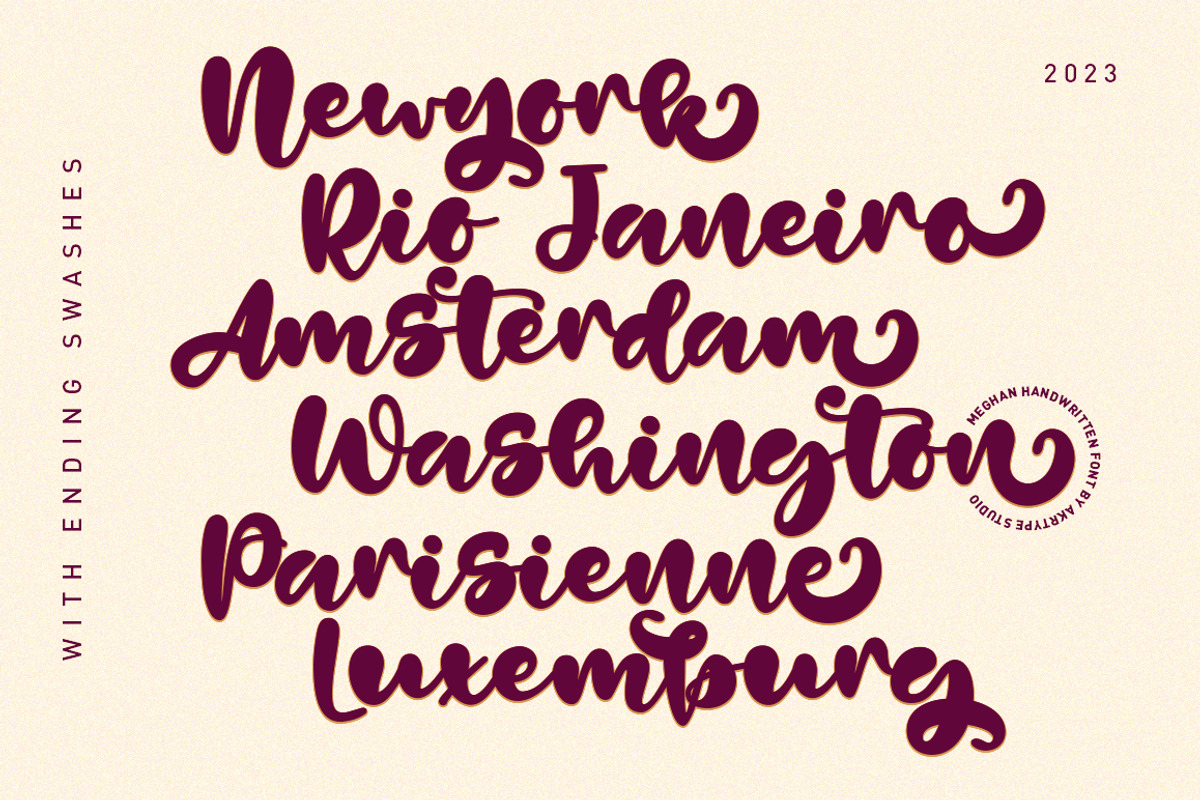 2023
Newyork
Rio Janeiro
Amsterdam
Washington
Parisienne
Luxemburg
WITH ENDING SWASHES
MEGHAN HANDWRITTEN FONT BY AKRTYPE STUDIO